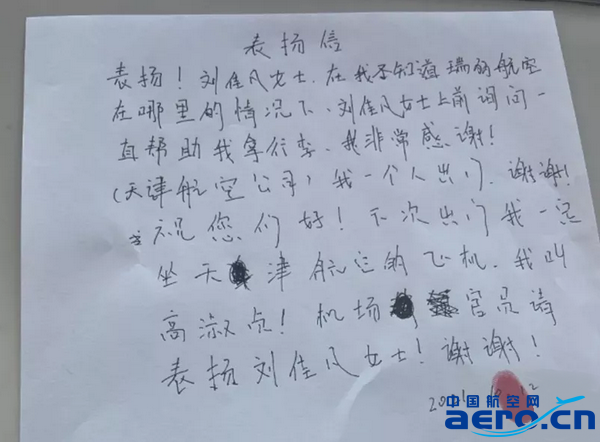 表扬信
表扬！刘佳凡女士.在我不知道瑞丽航空
在哪里的情况下、刘佳凡女士上前询问一
直帮助我拿行李、我非常感谢！
(天津航空公司)我一个人出门.谢谢！
祝您们好！下次出门我一定
坐天津航空的飞机.我叫
高淑贞！机场官员请
表扬刘佳凡女士！谢谢！
中国航空网
aero.cn